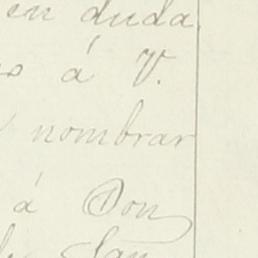 en duda
á V.
nombrar
á Don
San